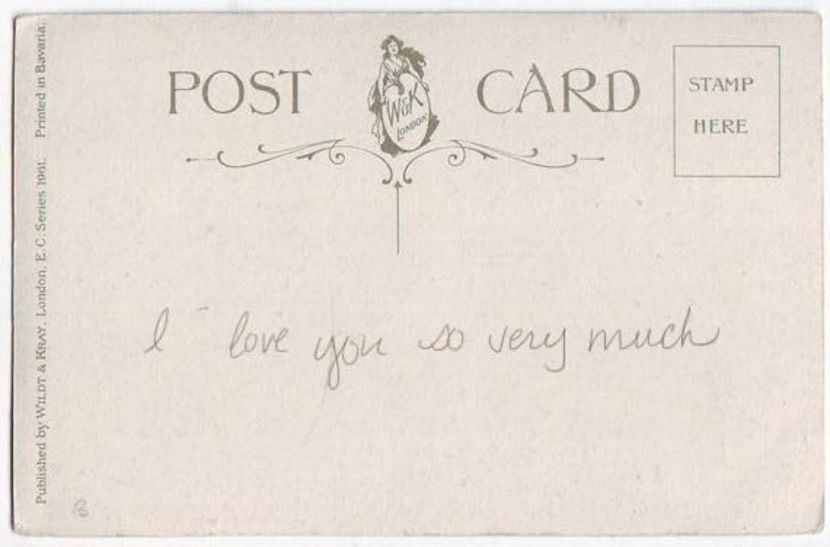 POST CARD
W&K
LONDON
STAMP
HERE
I love you so very much
Published by WILDT & KRAY, London, E.C. Series 1961. Printed in Bavaria.
B